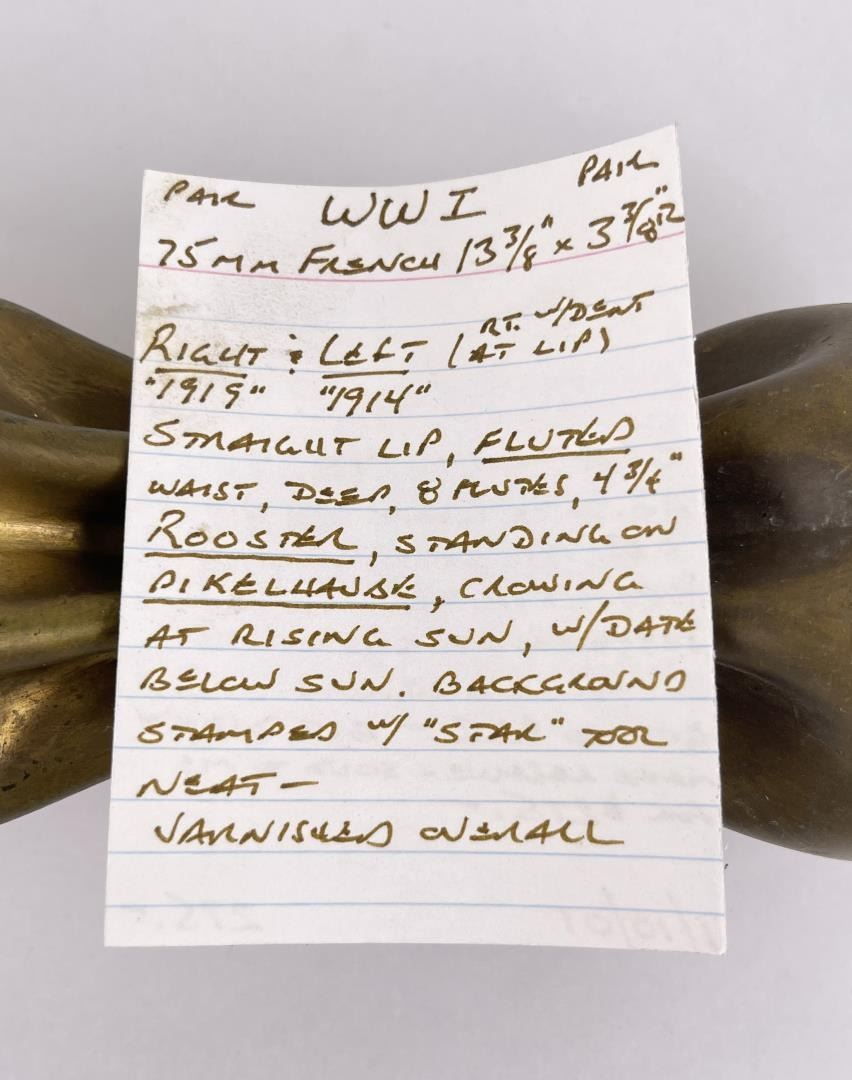 PAIR WWI PAIR
75MM FRENCH 13 3/8" x 3 3/8"
RIGHT & LEFT (RT. w/DENT AT LIP)
"1919" "1914"
STRAIGHT LIP, FLUTED
WAIST, DEEP, 8 FLUTES, 4 3/4"
ROOSTER, STANDING ON
PIKELHAUBE, CROWING
AT RISING SUN, W/DATE
BELOW SUN. BACKGROUND
STAMPED W/ "STAR" TOOL
NEAT-
VARNISHED OVERALL